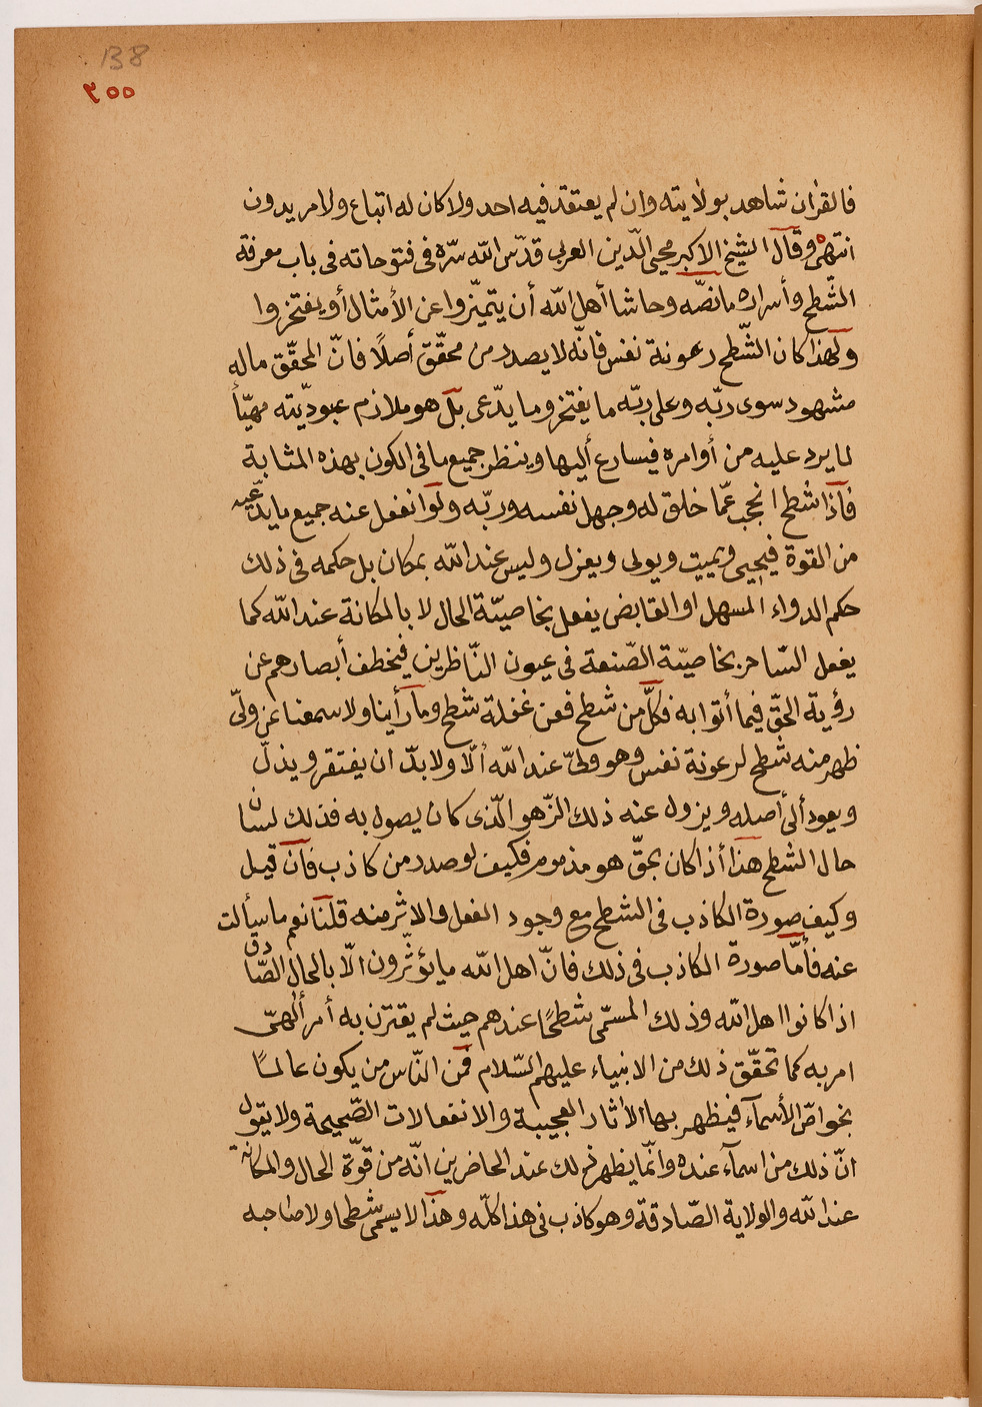 138
٣٥٥
فالقرٰان شاهد بولايته وان لم يعتقد فيه احد ولا كان له اتباع ولا مريدون
انتهى وقال الشيخ الاكبر محيى الدّين العربى قدّس الله سرّه فى فتوحاته فى باب معرفة
الشّطح وأسراره مانصّه وحاشا أهل الله أن يتميّزوا عن الأمثال أو يفتخروا
ولهذا كان الشّطح رعونة نفس فانّه لا يصدر من محقّق أصلًا فانّ المحقّق ماله
مشهود سوى ربّه وعلى ربّه ما يفتخر وما يدّعى بل هو ملازم عبوديّته مهيّأ
لما يرد عليه من أوامره فيسارع أليها وينظر جميع ما فى الكون بهذه المثابة
فأذا شطح انحجب عمّا خلق له وجهل نفسه وربّه ولو انفعل عنه جميع ما يدّعيه
من القوة فيحيى ويميت ويولى ويعزل وليس عند الله بمكان بل حكمه فى ذلك
حكم الدواء المسهل او القابض يفعل بخاصيّة الحال لا بالمكانة عند الله كما
يفعل السّاحر بخاصيّة الصّنعة فى عيون النّاظرين فيخطف أبصارهم عن
رؤية الحقّ فيما أتوا به فكلّ من شطح فعن غفلة شطح وما رأينا ولا سمعنا عن ولىّ
ظهر منه شطح لرعونة نفس وهو ولىّ عند الله ألّا ولا بدّ ان يفتقر ويذلّ
ويعود ألى أصله ويزول عنه ذلك الزّهو الّذى كان يصول به فذلك لسان
حال الشطح هذا أذا كان بحقّ هو مذموم فكيف لو صدر من كاذب فأن قيل
وكيف صورة الكاذب فى الشطح مع وجود الفعل والاثر منه قلنا نعم ما سألت
عنه فأمّا صورة الكاذب فى ذلك فانّ اهل الله ما يؤثّرون الّا بالحال الصّادق
اذا كانوا اهل الله وذلك المسمّى شطحًا عندهم حيث لم يقترن به أمر ألٰهىّ
امر به كما تحقّق ذلك من الانبياء عليهم السّلام فمن النّاس من يكون عالمًا
بخواصّ الأسمآء فيظهر بها الأثار العجيبة والانفعالات الصّحيحة ولا يقول
انّ ذلك من اسمآء عنده وانّما يظهر ذلك عند الحاضرين انّه من قوّة الحال والمكانة
عند الله والولاية الصّادقة وهو كاذب فى هذا كلّه وهذا لا يسمى شطحا ولا صاحبه